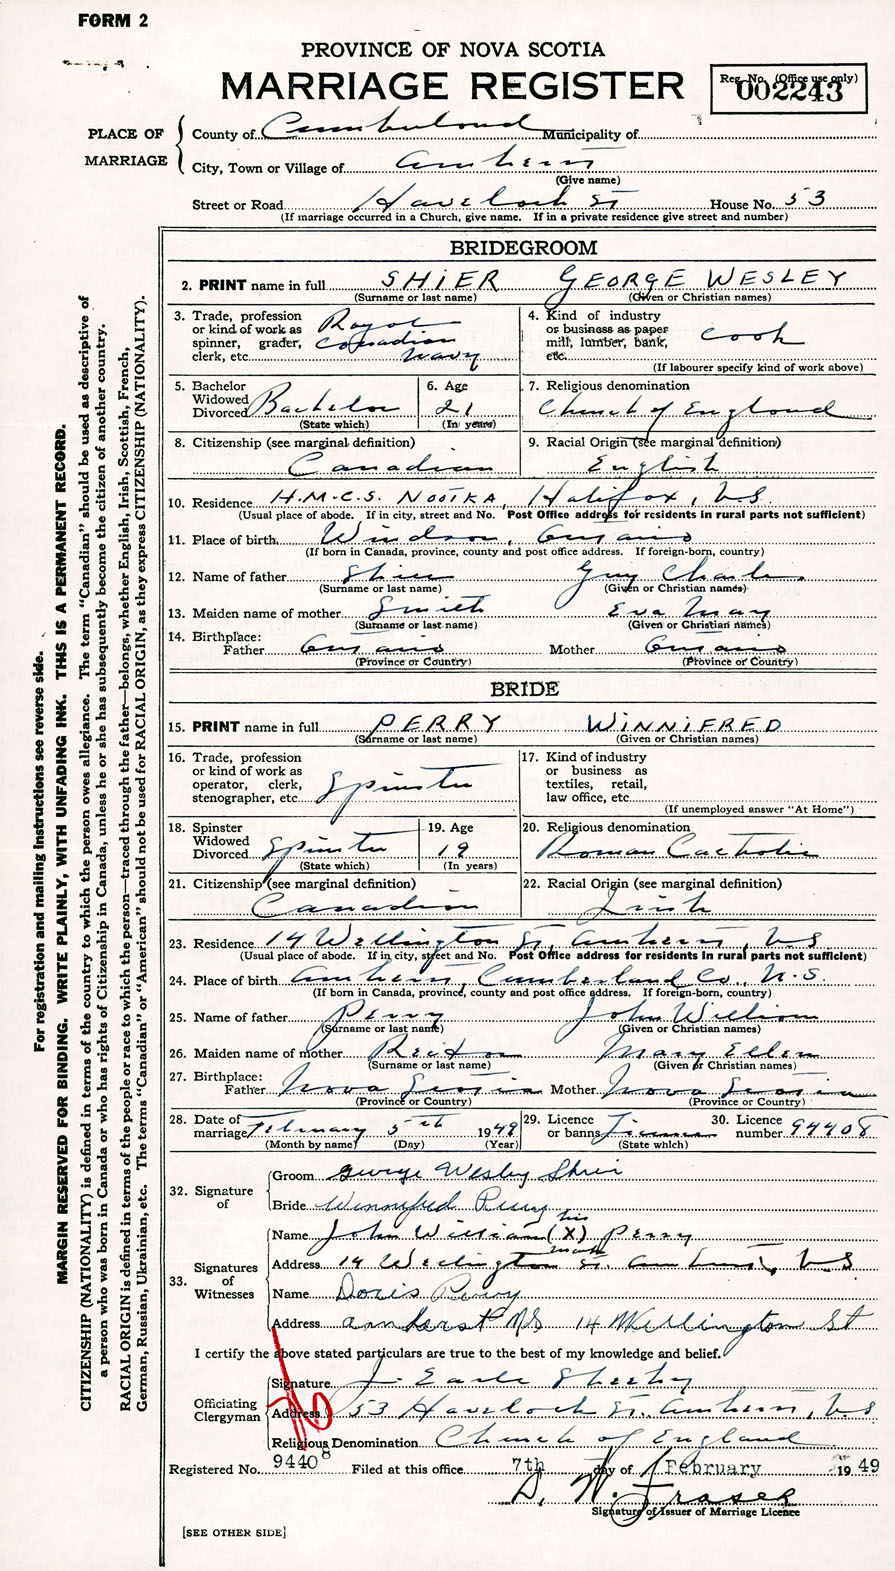 FORM 2
PROVINCE OF NOVA SCOTIA
MARRIAGE REGISTER
Reg. No. (Office use only)
002243
PLACE OF MARRIAGE
County of Cumberland Municipality of
City, Town or Village of Amherst
(Give name)
Street or Road Havelock St House No. 53
(If marriage occurred in a Church, give name. If in a private residence give street and number)
BRIDEGROOM
2. PRINT name in full SHIER GEORGE WESLEY
(Surname or last name) (Given or Christian names)
3. Trade, profession or kind of work as spinner, grader, clerk, etc. Royal Canadian Navy
4. Kind of industry or business as paper mill, lumber, bank, etc. Cook
(If labourer specify kind of work above)
5. Bachelor Widowed Divorced Bachelor
(State which)
6. Age 21
(In years)
7. Religious denomination
Church of England
8. Citizenship (see marginal definition)
Canadian
9. Racial Origin (see marginal definition)
English
10. Residence H.M.C.S. NOOTKA, Halifax, N.S.
(Usual place of abode. If in city, street and No. Post Office address for residents in rural parts not sufficient)
11. Place of birth Windsor, Ontario
(If born in Canada, province, county and post office address. If foreign-born, country)
12. Name of father Shier Guy Charles
(Surname or last name) (Given or Christian names)
13. Maiden name of mother Smith Eva May
(Surname or last name) (Given or Christian names)
14. Birthplace:
Father Ontario Mother Ontario
(Province or Country) (Province or Country)
BRIDE
15. PRINT name in full PERRY WINNIFRED
(Surname or last name) (Given or Christian names)
16. Trade, profession or kind of work as operator, clerk, stenographer, etc. Spinster
17. Kind of industry or business as textiles, retail, law office, etc.
(If unemployed answer "At Home")
18. Spinster Widowed Divorced Spinster
(State which)
19. Age 19
(In years)
20. Religious denomination
Roman Cactholic
21. Citizenship (see marginal definition)
Canadian
22. Racial Origin (see marginal definition)
Irish
23. Residence 14 Wellington St, Amherst, N.S
(Usual place of abode. If in city, street and No. Post Office address for residents in rural parts not sufficient)
24. Place of birth Amherst, Cumberland Co., N.S.
(If born in Canada, province, county and post office address. If foreign-born, country)
25. Name of father Perry John William
(Surname or last name) (Given or Christian names)
26. Maiden name of mother Mary Ellen
(Surname or last name) (Given or Christian names)
27. Birthplace:
Father Nova Scotia Mother Nova Scotia
(Province or Country) (Province or Country)
28. Date of marriage February 5th 1949
(Month by name) (Day) (Year)
29. Licence or banns License
(State which)
30. Licence number 94408
32. Signature of
Groom George Wesley Shier
Bride Winnifred Perry
33. Signatures of Witnesses
Name John William (X) Perry
his
mark
Address 14 Wellington St. Amherst, N.S
Name Doris Perry
Address Amherst NS 14 Wellington St
I certify the above stated particulars are true to the best of my knowledge and belief.
Officiating Clergyman
Signature J. Earle
Address 53 Havelock St. Amherst, N.S
Religious Denomination Church of England
Registered No. 94408 Filed at this office 7th day of February 1949
D. W. Fraser
Signature of Issuer of Marriage Licence
[SEE OTHER SIDE]
For registration and mailing instructions see reverse side.
MARGIN RESERVED FOR BINDING. WRITE PLAINLY, WITH UNFADING INK. THIS IS A PERMANENT RECORD.
CITIZENSHIP (NATIONALITY) is defined in terms of the country to which the person owes allegiance. The term "Canadian" should be used as descriptive of
a person who was born in Canada or who has rights of Citizenship in Canada, unless he or she has subsequently become the citizen of another country.
RACIAL ORIGIN is defined in terms of the people or race to which the person—traced through the father—belongs, whether English, Irish, Scottish, French,
German, Russian, Ukrainian, etc. The terms "Canadian" or "American" should not be used for RACIAL ORIGIN, as they express CITIZENSHIP (NATIONALITY).